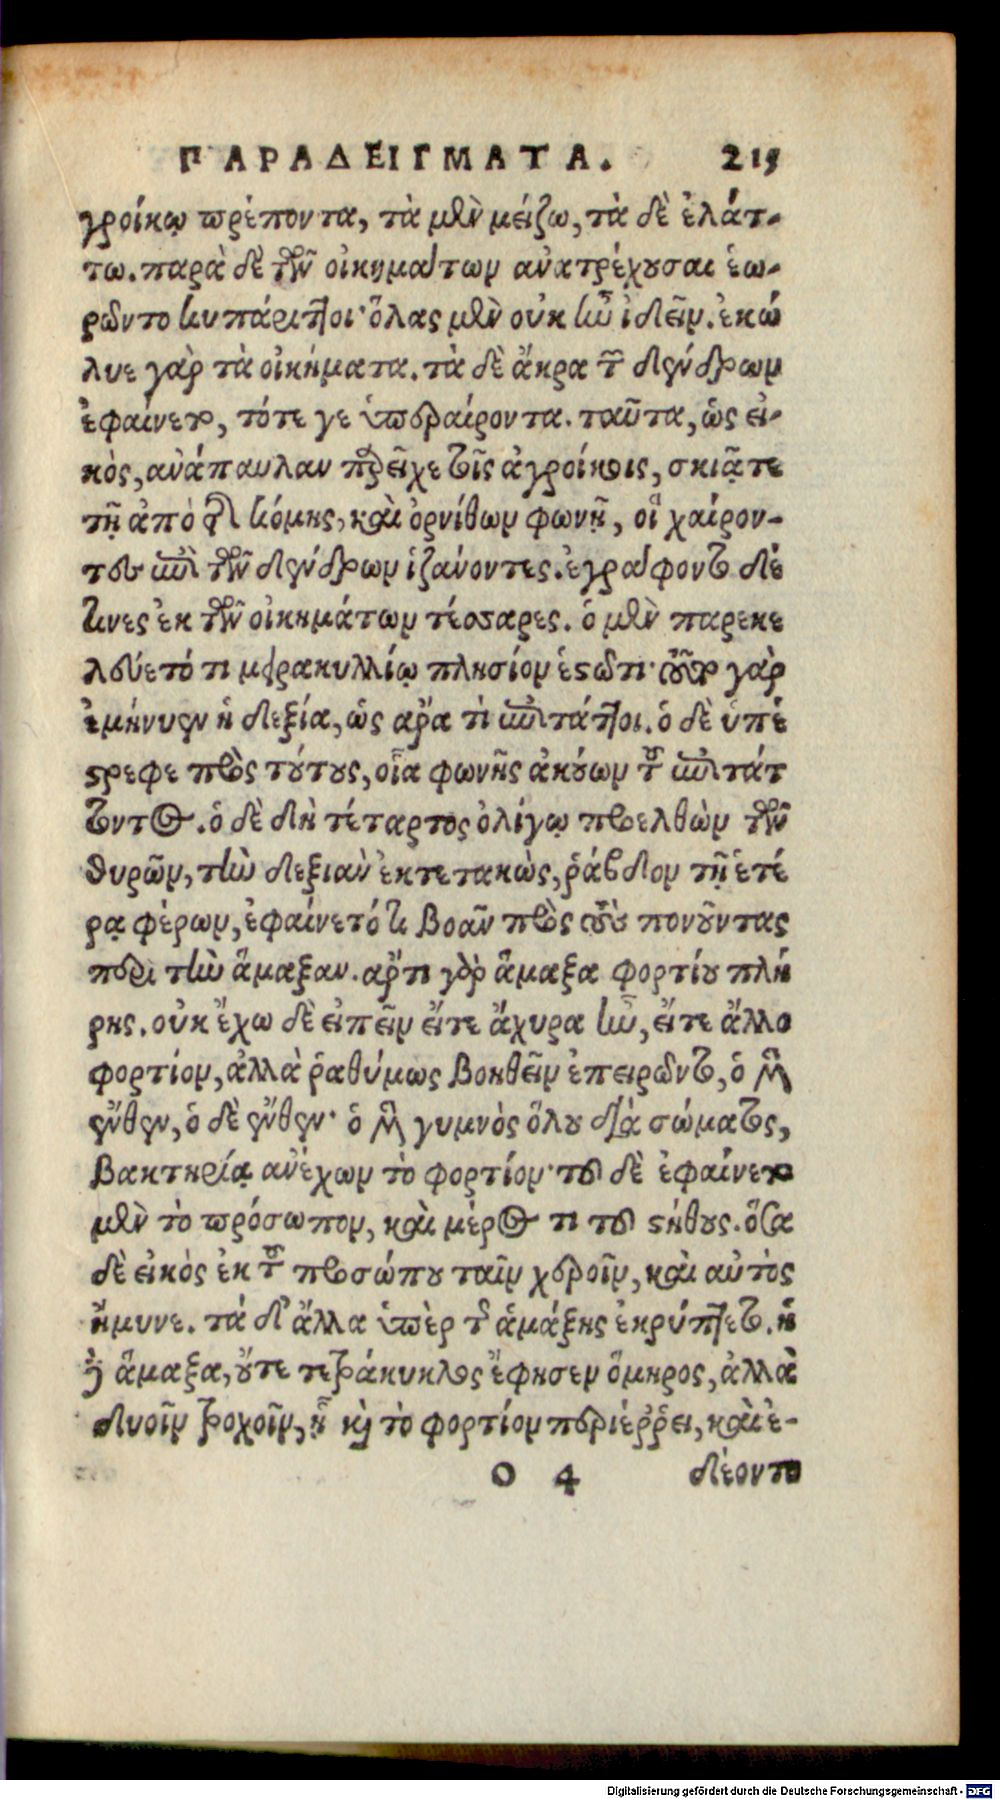 ΠΑΡΑΔΕΙΓΜΑΤΑ. 215
γροίκῳ πρέποντα, τὰ μὲν μείζω, τὰ δὲ ἐλάτ-
τω. παρὰ δὲ τῶν οἰκημάτων ἀνατρέχουσαι ἑω-
ρῶντο κυπάριττοι· ὅλας μὲν οὐκ ἦν ἰδεῖν. ἐκώ
λυε γὰρ τὰ οἰκήματα. τὰ δὲ ἄκρα τῶν δένδρων
ἐφαίνετο, τότε γε ὑπεραίροντα. ταῦτα, ὡς εἰ-
κὸς, ἀνάπαυλαν παρεῖχε τοῖς ἀγροίκοις, σκιᾷ τε
τῇ ἀπὸ τῆς κόμης, καὶ ὀρνίθων φωνῇ, οἳ χαίρον-
τες ἐπὶ τῶν δένδρων ἱζάνοντες. ἐγράφοντο δέ
τινες ἐκ τῶν οἰκημάτων τέσσαρες. ὁ μὲν παρεκε
λεύετό τι μειρακυλλίῳ πλησίον ἑστῶτι· τοῦτο γὰρ
ἐμήνυεν ἡ δεξιά, ὡς ἄρα τὶ ἐπιτάττοι. ὁ δὲ ὑπέ
στρεφε πρὸς τούτους, οἷα φωνῆς ἀκούων τοῦ ἐπιτάτ
τοντος. ὁ δὲ δὴ τέταρτος ὀλίγῳ προελθὼν τῶν
θυρῶν, τὴν δεξιὰν ἐκτετακὼς, ῥάβδον τῇ ἑτέ
ρᾳ φέρων, ἐφαίνετό τι βοᾶν πρὸς τοὺς πονοῦντας
περὶ τὴν ἅμαξαν. ἄρτι γὰρ ἅμαξα φορτίου πλή
ρης. οὐκ ἔχω δὲ εἰπεῖν εἴτε ἄχυρα ἦν, εἴτε ἄλλο
φορτίον, ἀλλὰ ῥαθύμως βοηθεῖν ἐπειρῶντο, ὁ μὲν
ἔνθεν, ὁ δὲ ἔνθεν· ὁ μὲν γυμνὸς ὅλου διὰ σώματος,
βακτηρίᾳ ἀνέχων τὸ φορτίον· τοῦ δὲ ἐφαίνετο
μὲν τὸ πρόσωπον, καὶ μέρος τι τοῦ στήθους. ὅσα
δὲ εἰκὸς ἐκ τοῦ προσώπου ταῖν χεροῖν, καὶ αὐτὸς
ἤμυνε. τὰ δ᾽ ἄλλα ὑπὲρ τῆς ἁμάξης ἐκρύπτετο. ἡ
δὲ ἅμαξα, οὔτε τετράκυκλος ἔφησεν ὅμηρος, ἀλλὰ
δυοῖν τροχοῖν, ᾗ καὶ τὸ φορτίον περιέῤῥει, καὶ ἐ-
O 4 δέοντο
Digitalisierung gefördert durch die Deutsche Forschungsgemeinschaft - DFG